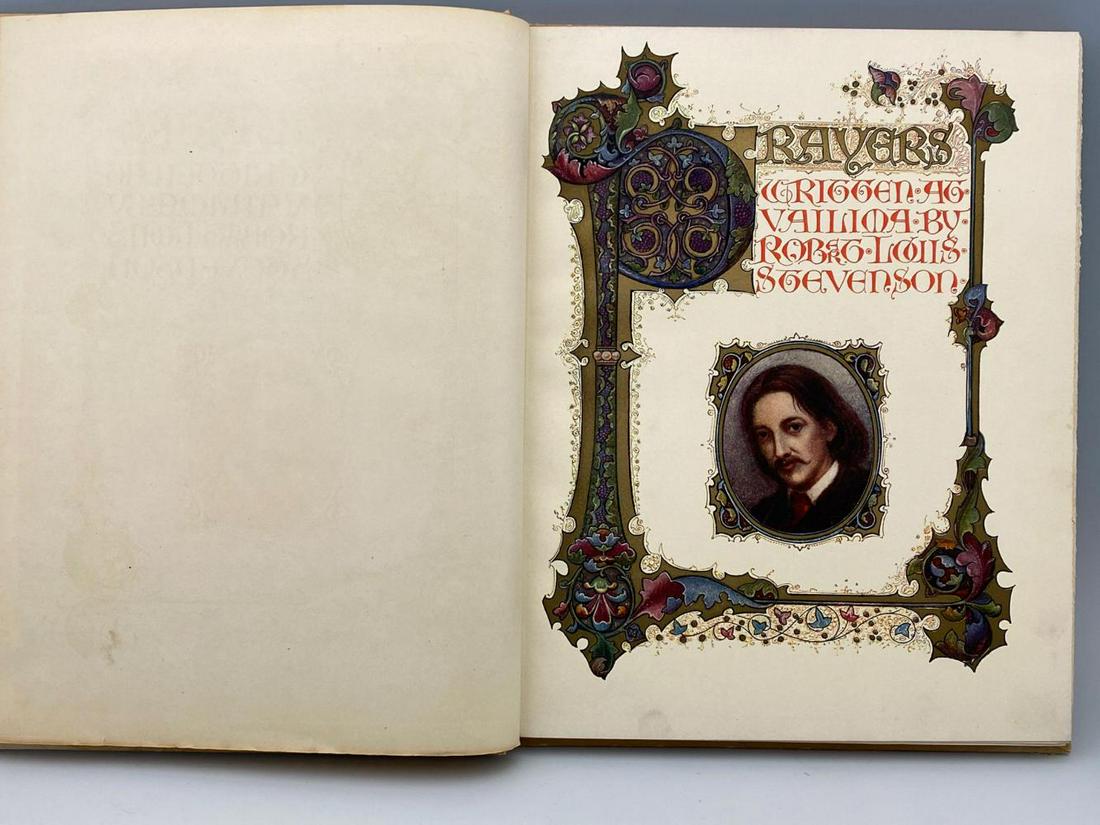 PRAYERS
WRITTEN·AT·
VAILIMA·BY·
ROBERT·LOUIS·
STEVENSON·